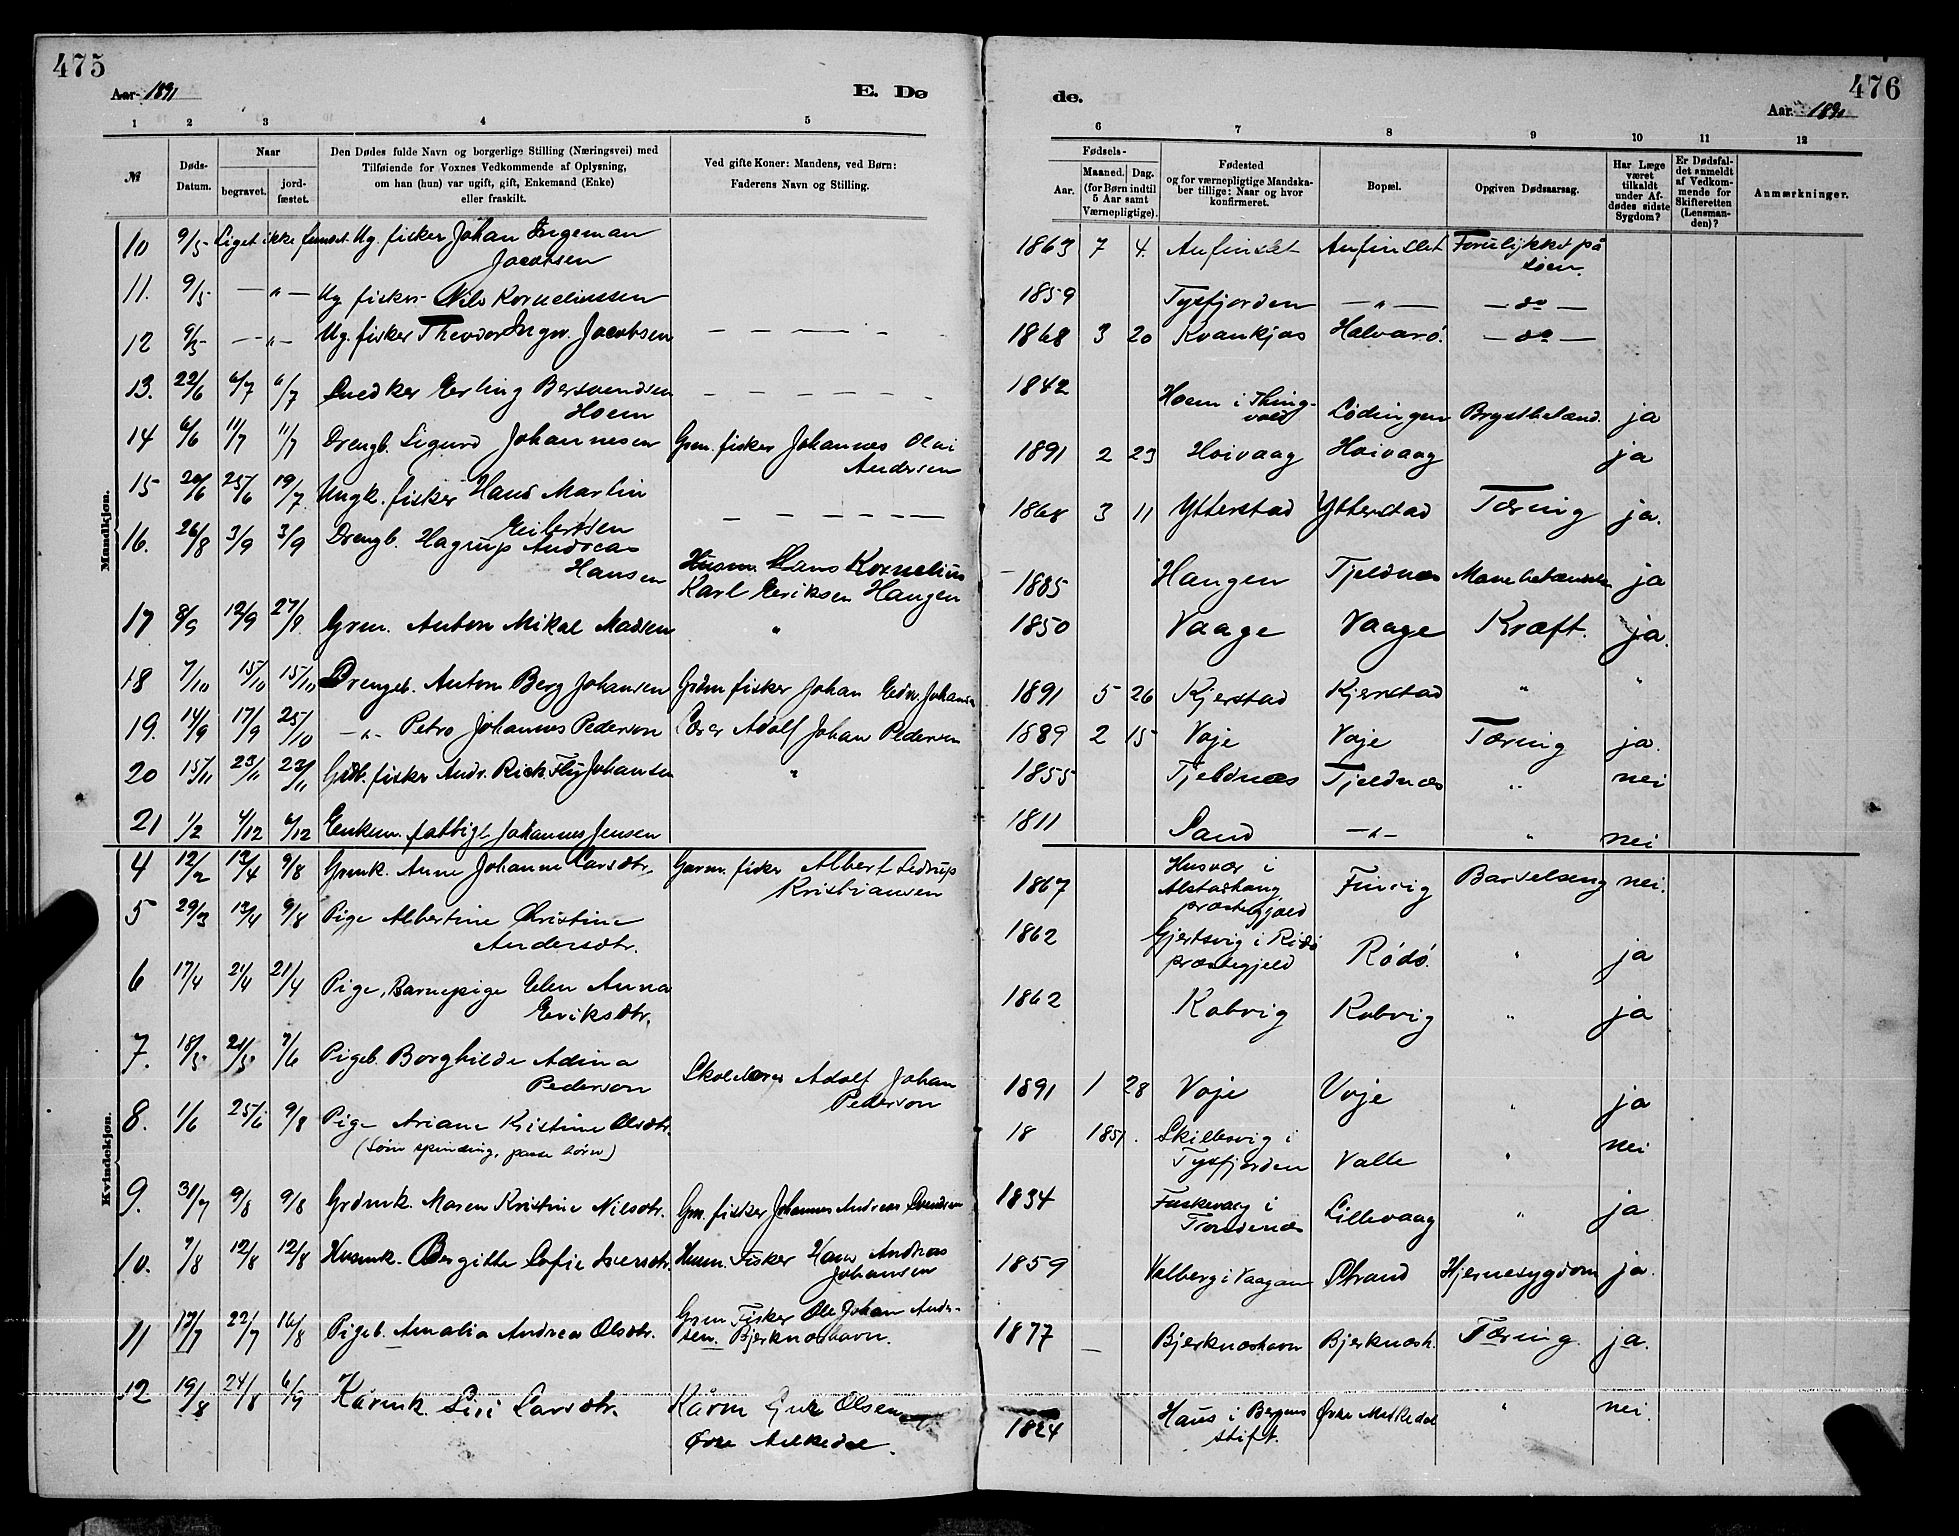 475
Aar 1891
E. Dø
1 2 3 4 5
№
Døds-Datum.
Naar
begravet.
jord-fæstet.
Den Dødes fulde Navn og borgerlige Stilling (Næringsvei) med
Tilføiende for Voxnes Vedkommende af Oplysning,
om han (hun) var ugift, gift, Enkemand (Enke)
eller fraskilt.
Ved gifte Koner: Mandens, ved Børn:
Faderens Navn og Stilling.
Mandkjøn.
10 9/5 Liget ikke fundet. Ug. fisker Johan Ingeman
Jacobsen
11. 9/5 — " — Ug fisker Nils Korneliussen
12 9/5 — " — Ug. fisker Theodor Ingv. Jacobsen — — — — —
13. 22/6 6/7 6/7 Snedker Erling Bersvendsen — — — — —
Hoem
14 6/6 11/7 11/7 Drengb. Sigurd Johannesen Grm. fisker Johannes Olai
Andersen
15 20/6 25/6 19/7 Ungk. fisker Hans Martin
Eilertsen — — — — —
16. 26/8 3/9 3/9 Drengb. Hagrup Andreas
Hansen Husm. Hans Kornelius
Karl Eriksen Haugen
17 8/9 12/9 27/9 Grm. Anton Mikal Madsen "
18 7/10 15/10 15/10 Drengeb. Anton Berg Johansen Grdm fisker Johan Edv. Johansen
19. 14/9 17/9 25/10 — " — Petro Johannes Pedersen Lærer Adolf Johan Pedersen
20 15/11 23/11 23/11 Grdb. fisker Andr. Rick Fly Johansen "
21 1/2 6/12 6/12 Enkem. fattigl Johannes Jensen
Kvindekjøn.
4 12/2 13/4 9/8 Grmk. Anne Johanne Larsdtr. Garm. fisker Albert Sedrup
Kristiansen
5 29/3 13/4 9/8 Pige Albertine Christine
Andersdtr.
6 17/4 21/4 21/4 Pige, Barnepige Elen Anna
Eriksdtr.
7. 18/5 21/5 7/6 Pigeb. Borghilde Adina
Pedersen Skolelærer Adolf Johan
Pedersen
8. 1/6 25/6 9/8 Pige Ariane Kristine Olsdtr.
(Som spinding, passe børn)
9. 31/7 9/8 9/8 Grdmk. Maren Kristine Nilsdtr. Grm. fisker Johannes Andreas Svendsen
10. 7/8 12/8 12/8 Husmk. Bergitte Sofie Iversdtr. Husm. Fisker Hans Andreas
Johansen
11 17/7 22/7 16/8 Pigeb. Amalia Andrea Olsdtr. Grm Fisker Ole Johan Ander-
sen Bjerknæshavn.
12 19/8 24/8 6/9 Kårmk. Siri Larsdtr. Kårm Sjur Olsen
Øvre
476
Aar 1891
de.
6 7 8 9 10 11 12
Fødsels-
Aar.
Maaned. Dag.
(for Børn indtil
5 Aar samt
Værnepligtige).
Fødested
og for værnepligtige Mandska-
ber tillige: Naar og hvor
konfirmeret.
Bopæl.
Opgiven Dødsaarsag.
Har Læge
været
tilkaldt
under Af-
dødes sidste
Sygdom?
Er Dødsfal-
det anmeldt
af Vedkom-
mende for
Skifteretten
(Lensman-
den)?
Anmærkninger.
1863 7 4. Anfindlet Anfindlet Forulykket på
søen.
1859 Tysfjorden — " — — do —
1868 3 20 Kvankjos Halvarø. — do —
1842 Hoem i Thing-
vold Lødingen Brystbetænd. ja
1891 2 23 Hoivaag Hoivaag ja
1868 3 11 Ytterstad Ytterstad Tæring ja.
1885 Haugen Tjeldnæs Mavebetændelse ja
1850 Vaage Vaage Kræft. ja.
1891 5 26 Kjerstad Kjerstad " "
1889 2 15 Voje Voje Tæring ja.
1855 Tjeldnæs Tjeldnæs " nei
1811 Sand — " — " nei
1867 Husvær i
Alstadhaug
præstegjæld Finvig Barselseng nei.
1862 Gjertsvig i Rødø
præstegjeld Rødø. " ja
1862 Kobvig Kobvig " ja
1891 1 28 Voje Voje " ja
18 1851. Skillesvig i
Tysfjorden Valle " nei
1834 Fuskevaag i
Trondenæs Lillevaag " ja
1859 Valberg i Vaagan Strand Hjernesygdom ja.
1877 — Bjerknæshavn Bjerknæsh. Tæring ja.
1824 Haus i Bergens
stift. Øvre " nei.